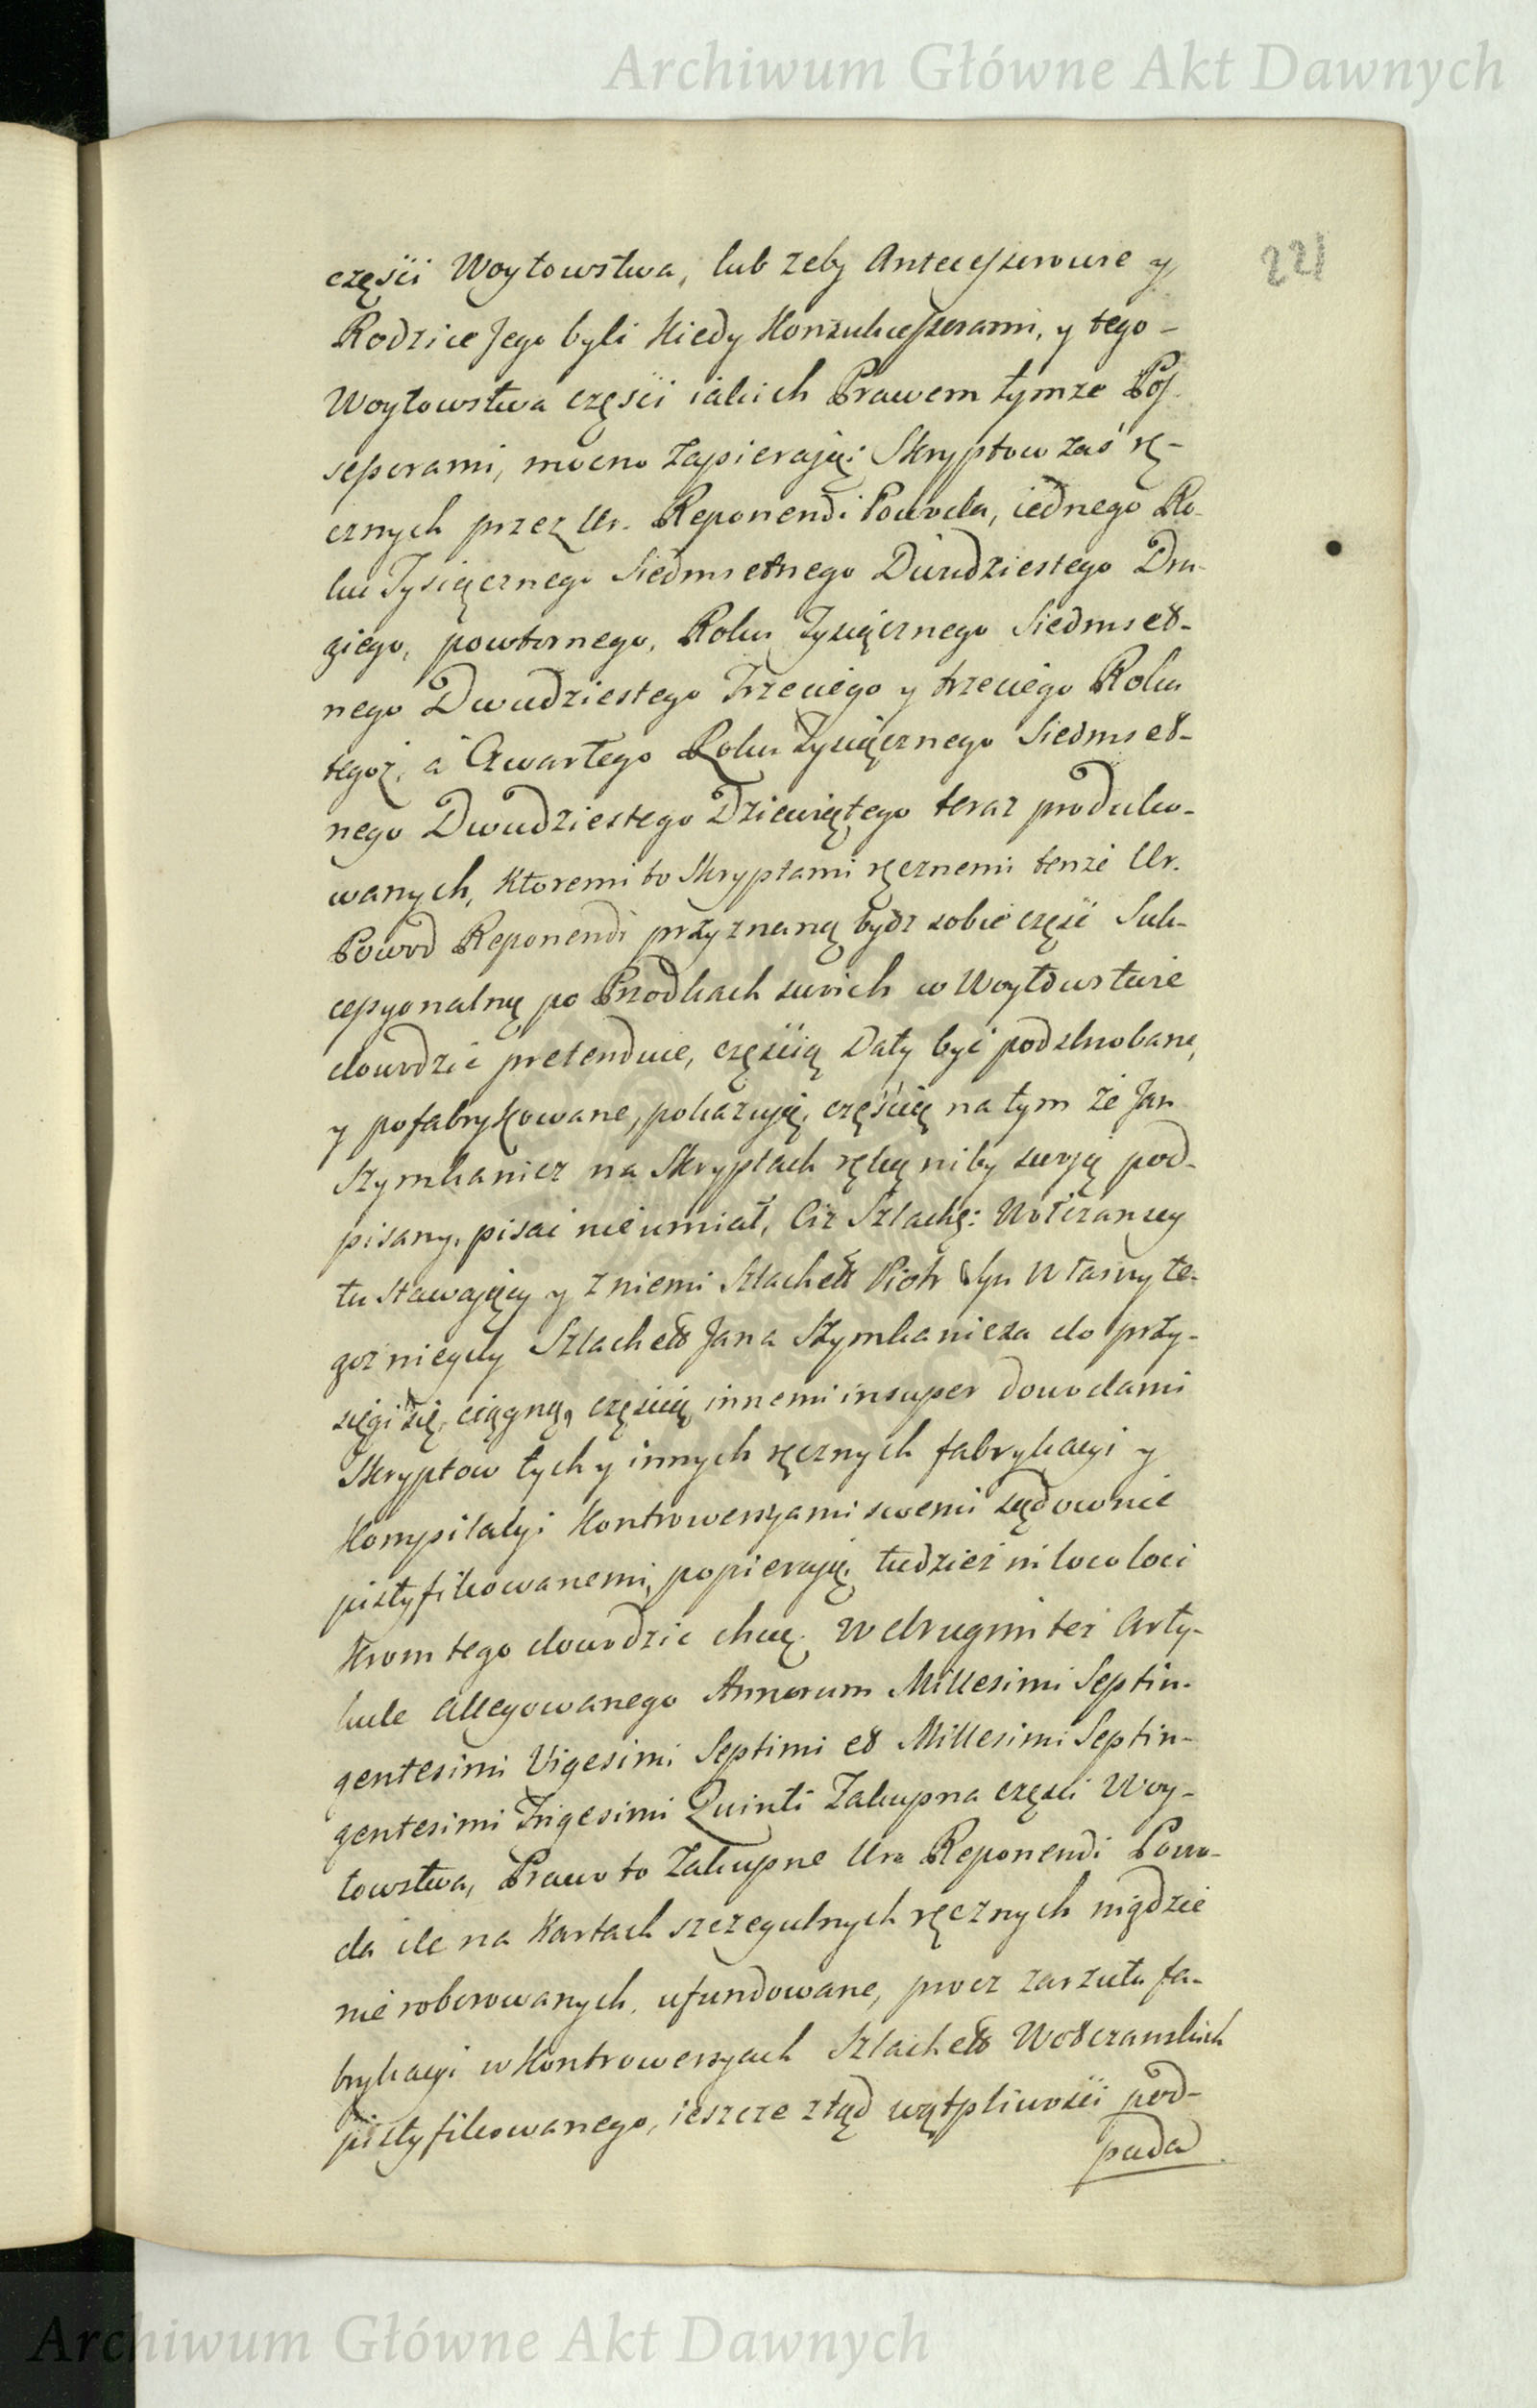 Archiwum Główne Akt Dawnych
221
części Woytowstwa, lub zeby Antecessorowie y
Rodzice Jego byli kiedy Konsukcessorami, y tego-
Woytowstwa części iakich Prawem tymze Pos-
sessorami, mocno zapieraią: Skryptow zaś rę-
cznych przez Ur. Reponendi Powoda, iednego Ro-
ku Tysiącznego Siedmsetnego Dwudziestego Dru-
giego, powtornego, Roku Tysiącznego Siedmset-
nego Dwudziestego Trzeciego y trzeciego Roku
tegoż, a Czwartego Roku Tysiącznego Siedmset-
nego Dwudziestego Dziewiątego teraz produko-
wanych, ktoremi to Skryptami ręcznemi tenże Ur.
Powod Reponendi przyznaną bydz sobie część Suk-
cessyonalną po Przodkach swoich w Woytowstwie
dowodzić pretenduie, częścią Daty być podskrobane,
y pofabrykowane, pokazuią, częścią na tym że Jan
Szymkanicz na Skryptach ręką niby swoją pod-
pisany, pisać nie umiał, Ciż Szlachę: Wołczanscy
tu stawaiący y z niemi Szlachet Piotr Syn Własny te-
goz niegdy Szlachet Jana Szymkanicza do przy-
sięgi się ciągną, częścią innemi insuper dowodami
Skryptow tych y innych ręcznych fabrykacyi y
Kompilacyi Kontrowersyami swemi sądownie
justyfikowanemi, popieraią, tudzież in loco loci
krom tego dowodzic chcą. W drugim też Arty-
kule allegowanego Annorum Millesimi Septin-
gentesimi Vigesimi Septimi et Millesimi Septin-
gentesimi Trigesimi Quinti Zakupna części Woy-
towstwa, Prawo to Zakupne Ur. Reponendi Powo-
da ile na Kartach szczegulnych ręcznych nigdzie
nie roborowanych, ufundowane, procz zarzutu fa-
brykacyi w Kontrowersyach Szlachet Wołczanskich
justyfikowanego, ieszcze ztąd wątpliwości pod-
pada
Archiwum Główne Akt Dawnych